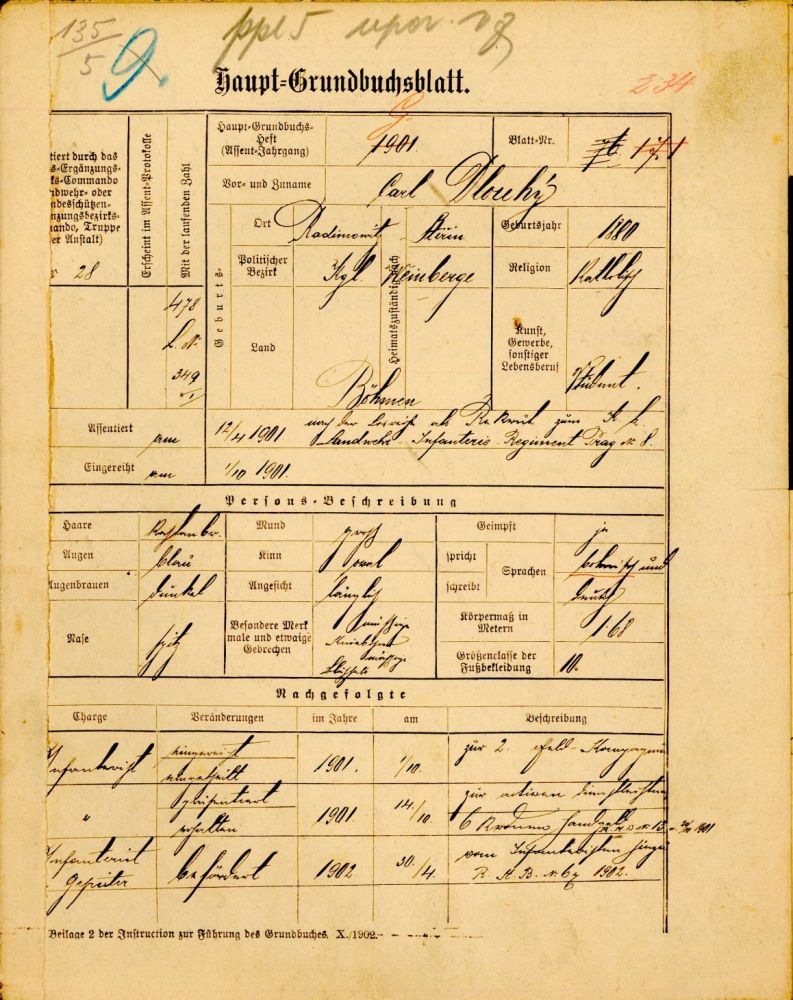 135
5
9.
Haupt-Grundbuchsblatt.
234
tiert durch das
s-Ergänzungs-
ks-Commando
ndwehr- oder
ndesschützen-
nzungsbezirks-
ando, Truppe
er Anstalt)
28
Erscheint im Assent-Protokolle
Mit der laufenden Zahl
478
L. Nr.
349
Haupt-Grundbuchs-
Heft
(Assent-Jahrgang)
1901.
Blatt-Nr.
Vor- und Zuname
Carl Dlouhý
Geburts-
Ort
Radimowit
Politischer
Bezirk
Kgl. Weinberge
Land
Böhmen
Heimatszuständig nach
Geburtsjahr
1880
Religion
Katholisch
Kunst,
Gewerbe,
sonstiger
Lebensberuf
Student.
Assentiert
am
12/4 1901
nach der Losreihe als Rekrut zum K. k.
Landwehr-Infanterie-Regiment Prag Nr 8.
Eingereiht
am
1/10 1901.
Persons-Beschreibung
Haare
Kastanbr.
Mund
gross
Geimpft
ja
Augen
blau
Kinn
oval
spricht
schreibt
Sprachen
böhmisch und
deutsch
Augenbrauen
dunkel
Angesicht
länglich
Nase
spitz
Besondere Merk
male und etwaige
Gebrechen
mässige
mässige
Körpermaß in
Metern
1·68
Größenclasse der
Fußbekleidung
10.
Nachgefolgte
Charge
Veränderungen
im Jahre
am
Beschreibung
Infanterist
eingereiht
eingetheilt
1901.
1/10.
zur 2. Feld-Kompagnie
"
präsentiert
erhalten
1901.
14./10
zur activen Dienstleistung
6 Kronen Handgeld
Infanterist
Gefreiter
befördert
1902
30./4.
vom Infanteristen hiezu
R. A. B. Nr 67 1902.
Beilage 2 der Instruction zur Führung des Grundbuches. X./1902.